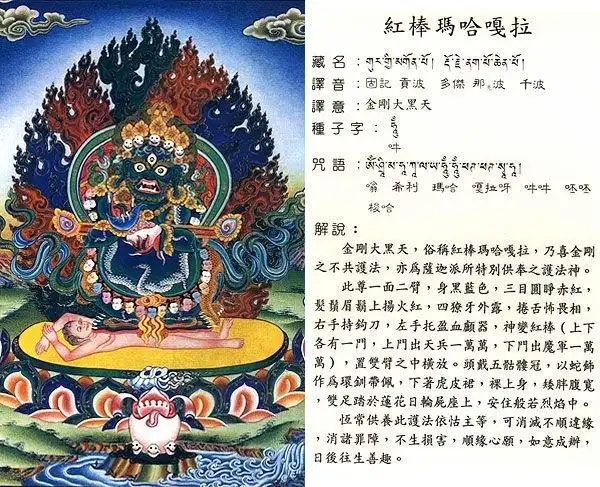 紅棒瑪哈嘎拉
藏名：གུར་གྱི་མགོན་པོ། རྡོ་རྗེ་ནག་པོ་ཆེན་པོ།
譯音：固記 貢波 多傑 那 波 千波
譯意：金剛大黑天
種子字：ཧཱུྃ
吽
咒語：ༀ་ཤྲཱི་མ་ཧཱ་ཀཱ་ལ་ཡ་ཧཱུྃ་ཧཱུྃ་ཕཊ་ཕཊ་སྭཱ་ཧཱ།
嗡 希利 瑪哈 嘎拉呀 吽吽 呸呸
梭哈
解說：
金剛大黑天，俗稱紅棒瑪哈嘎拉，乃喜金剛
之不共護法，亦為薩迦派所特別供奉之護法神。
此尊一面二臂，身黑藍色，三目圓睜赤紅，
髮鬚眉鬍上揚火紅，四獠牙外露，捲舌怖畏相，
右手持鉤刀，左手托盈血顱器，神變紅棒（上下
各有一門，上門出天兵一萬萬，下門出魔軍一萬
萬），置雙臂之中橫放。頭戴五骷髏冠，以蛇飾
作為環釧帶佩，下著虎皮裙，裸上身，矮胖腹寬
，雙足踏於蓮花日輪屍座上，安住般若烈焰中。
恆常供養此護法依怙主等，可消滅不順違緣
，消諸罪障，不生損害，順緣心願，如意成辦，
日後往生善趣。